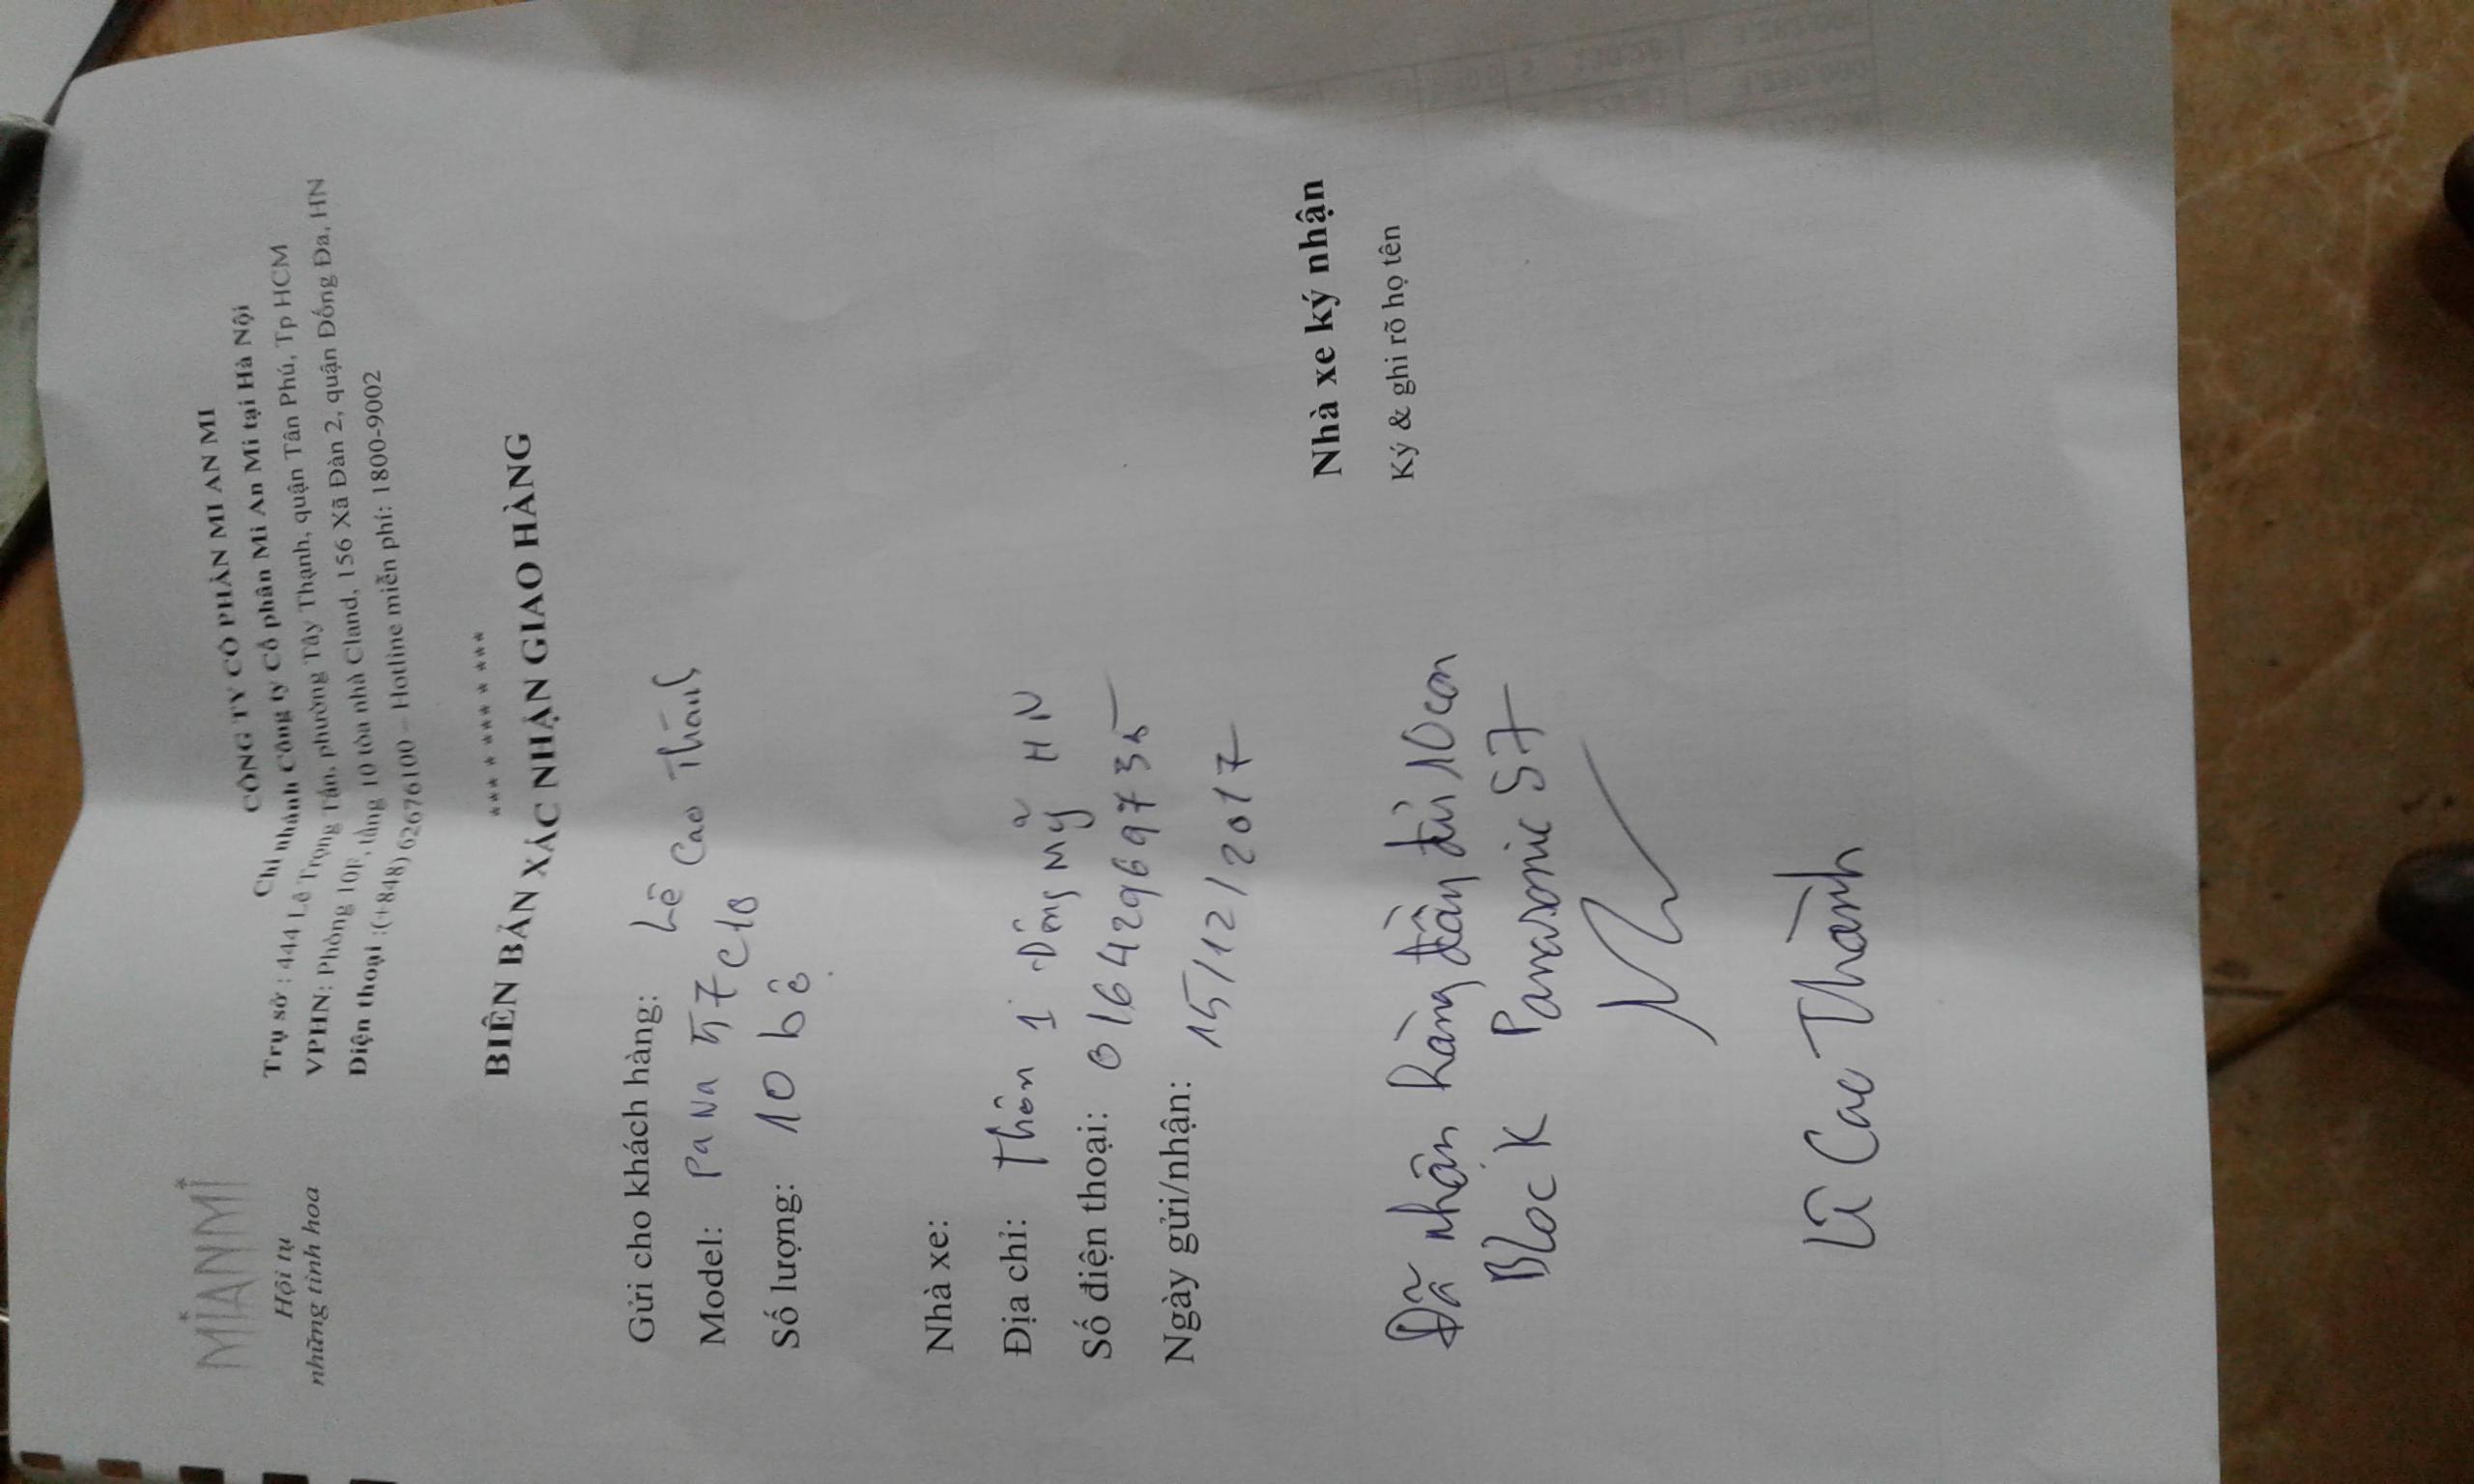 MIANMI
Hội tụ
những tinh hoa
CÔNG TY CỔ PHẦN MI AN MI
Chi nhánh Công ty Cổ phần Mi An Mi tại Hà Nội
Trụ sở : 444 Lê Trọng Tấn, phường Tây Thạnh, quận Tân Phú, Tp HCM
VPHN: Phòng 10F, tầng 10 tòa nhà Cland, 156 Xã Đàn 2, quận Đống Đa, HN
Điện thoại :(+848) 62676100 – Hotline miễn phí: 1800-9002
*** * *** * ***
BIÊN BẢN XÁC NHẬN GIAO HÀNG
Gửi cho khách hàng: Lê Cao Thành
Model: PaNa
Số lượng: 10
Nhà xe:
Địa chỉ: Thôn 1 Đông Mỹ HN
Số điện thoại: 01642969735
Ngày gửi/nhận: 15/12/2017
Nhà xe ký nhận
Ký & ghi rõ họ tên
Đã nhận hàng đầy đủ 10 con
Block Panasonic 57
Lê Cao Thành